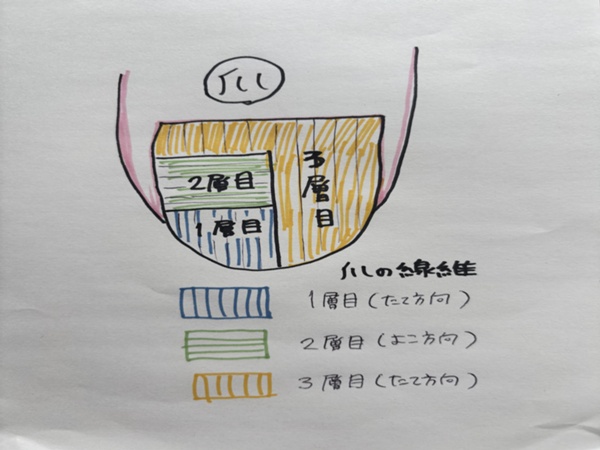 爪
2層目
1層目
3層目
爪の線維
1層目(たて方向)
2層目(よこ方向)
3層目(たて方向)